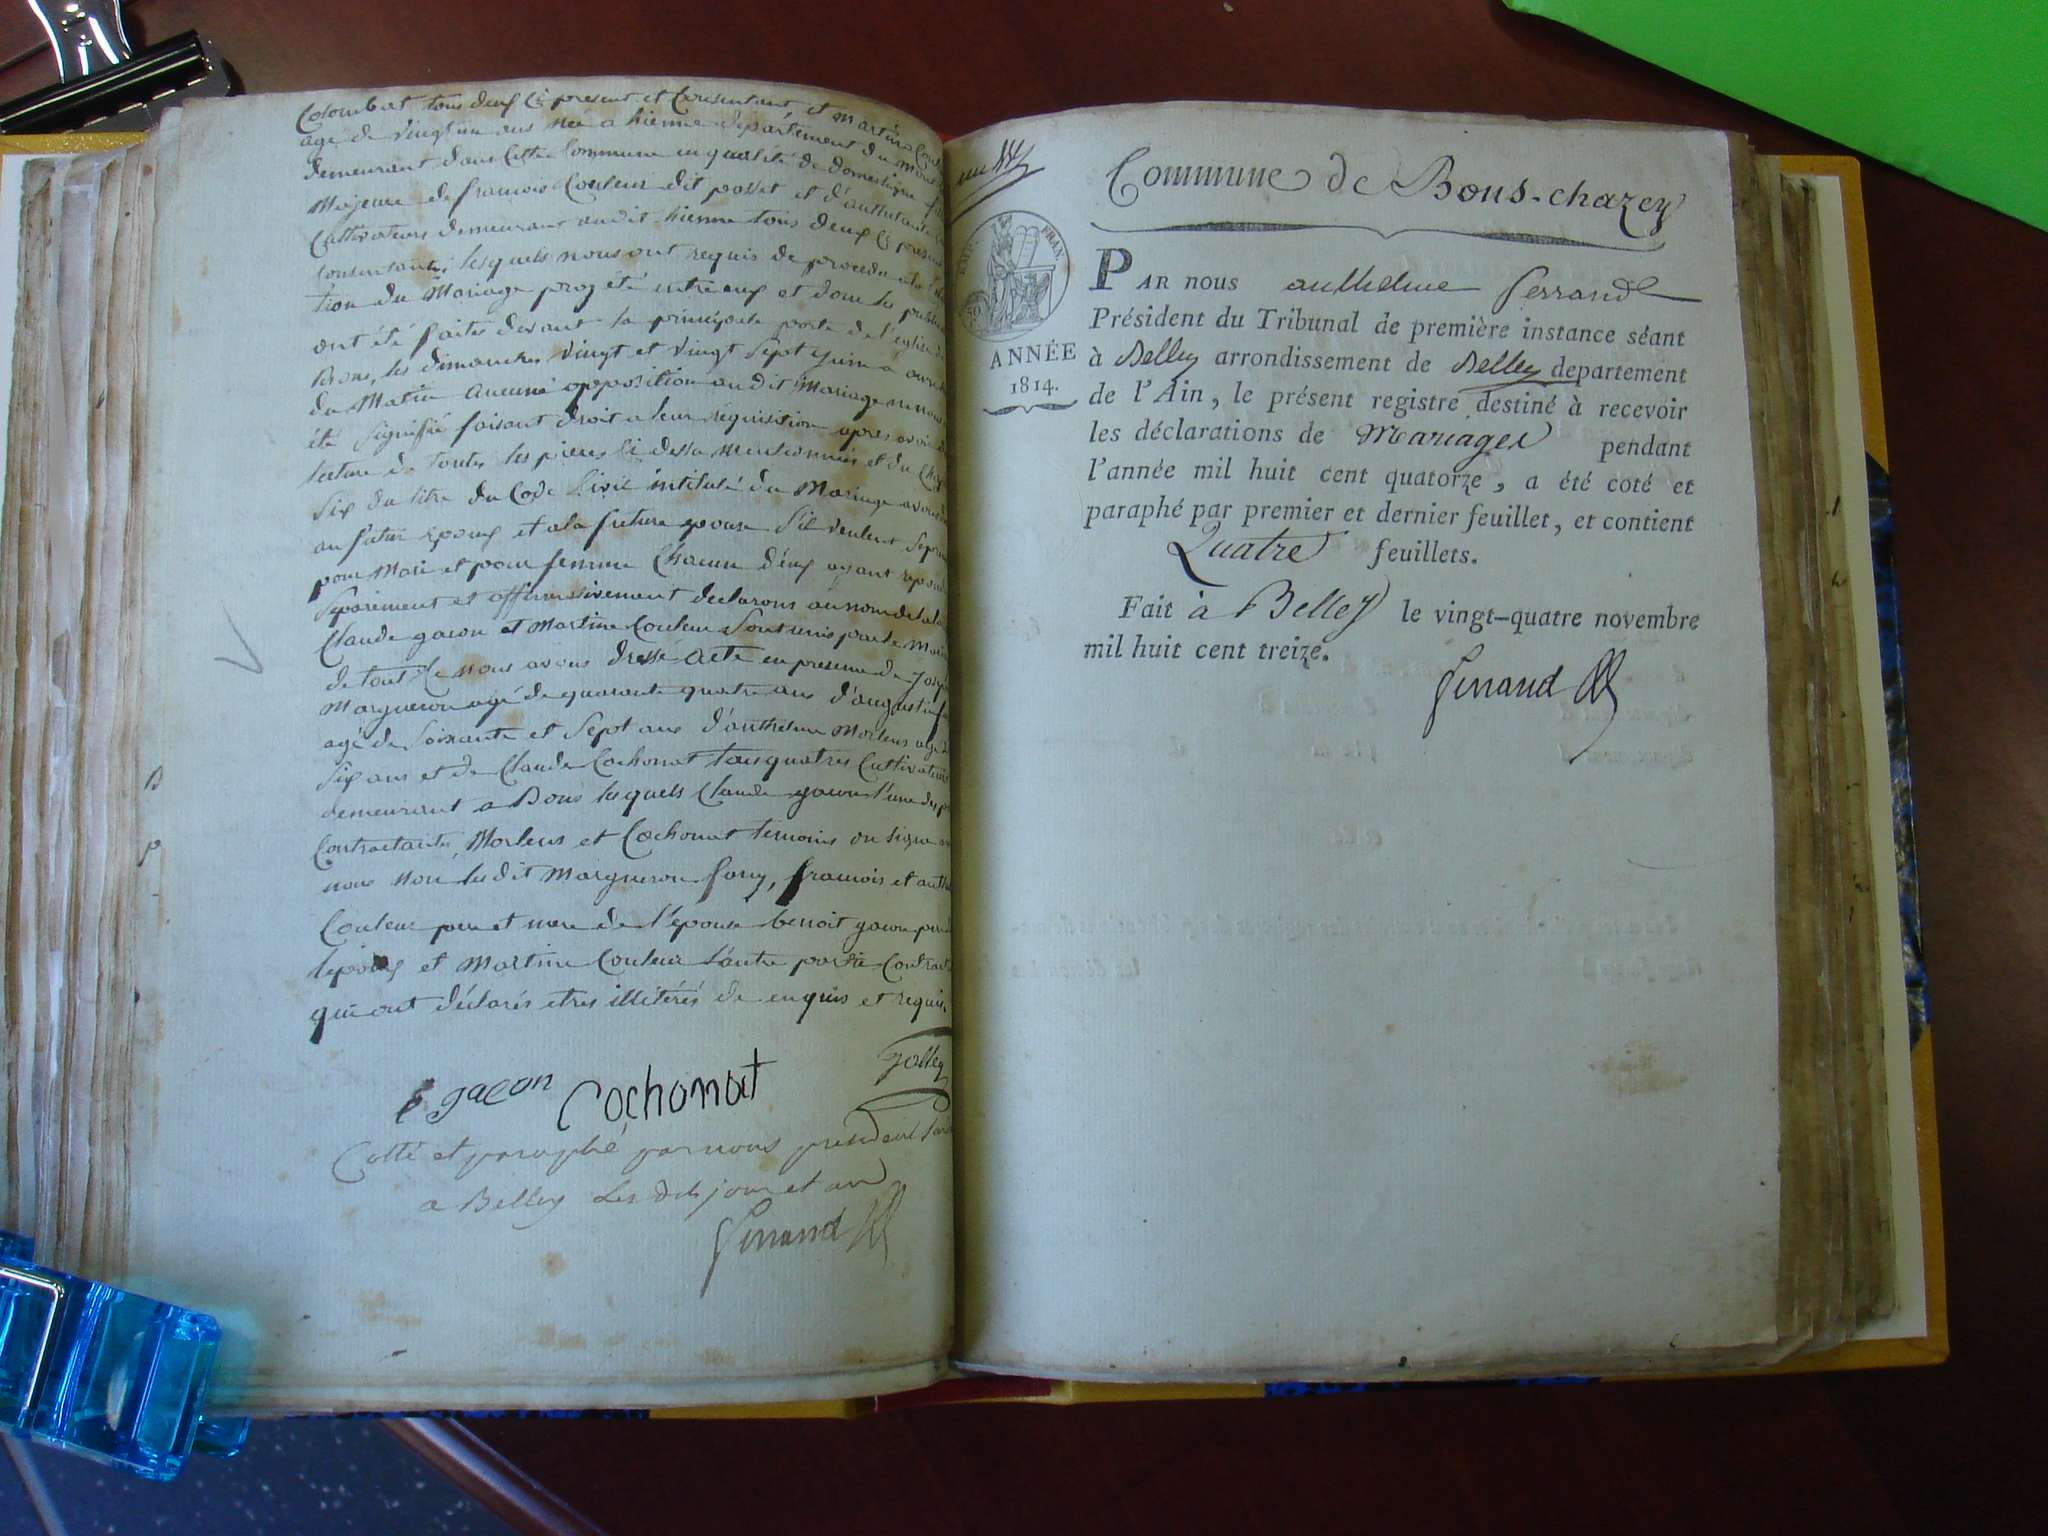 Colombat tous deux ci present et Consentant, et martine
age de vingt un ans née a hienne departement du mont
demeurant dans cette Commune en qualité de domestique
Majeure de francois Couleur dit posset et d'anthelmette
Cultivateurs demeurant audit hienne tous deux ci present
consentants, lesquels nous ont requis de proceder a la
tion du Mariage projété entre eux et dont les
ont été faites devant la principale porte de l'eglise de
Bons, les dimanches vingt et vingt sept juin a
du Matin aucune opposition audit Mariage ne nous
été signifiée faisant droit a leur réquisition apres avoir
lecture de toutes les pieces ci dessu mentionnées et du
six du titre du Code Civil intitulé du Mariage avons
au futur epoux et a la future epouse s'il veulent
pour Mari et pour femme Chacun d'eux ayant
separement et affirmativement declarons au nom de la
Claude gacon et Martine Couleur sont unis par le
de tout ce nous avons dresse acte en presence de
Margueron agé de quarante quatre ans d'augustin
agé de soixante et sept ans d'anthelme Morlens agé
six ans et de Claude Cochonat tous quatres Cultivateurs
demeurant a Bons lesquels Claude gacon l'une des
Contractantes, Morlens et Cochonat temoins on signe
nous non les dit Margueron fory, francois et
Couleur pere et mere de l'epouse benoit gacon pere
lepoux et Martine Couleur l'autre partie
qui ont déclarés etres illétérés de enquis et requis.
gacon Cochonat jolley
Cotté et paraphé par nous president
a Belley les dits jour et an
ferrand
Commune de Bons-chazey
EMP. FRAN.
50
ANNÉE
1814.
PAR nous anthelme ferrand
Président du Tribunal de première instance séant
à Belley arrondissement de Belley departement
de l'Ain, le présent registre destiné à recevoir
les déclarations de Mariages pendant
l'année mil huit cent quatorze, a été coté et
paraphé par premier et dernier feuillet, et contient
Quatre feuillets.
Fait à Belley le vingt-quatre novembre
mil huit cent treize.
ferrand